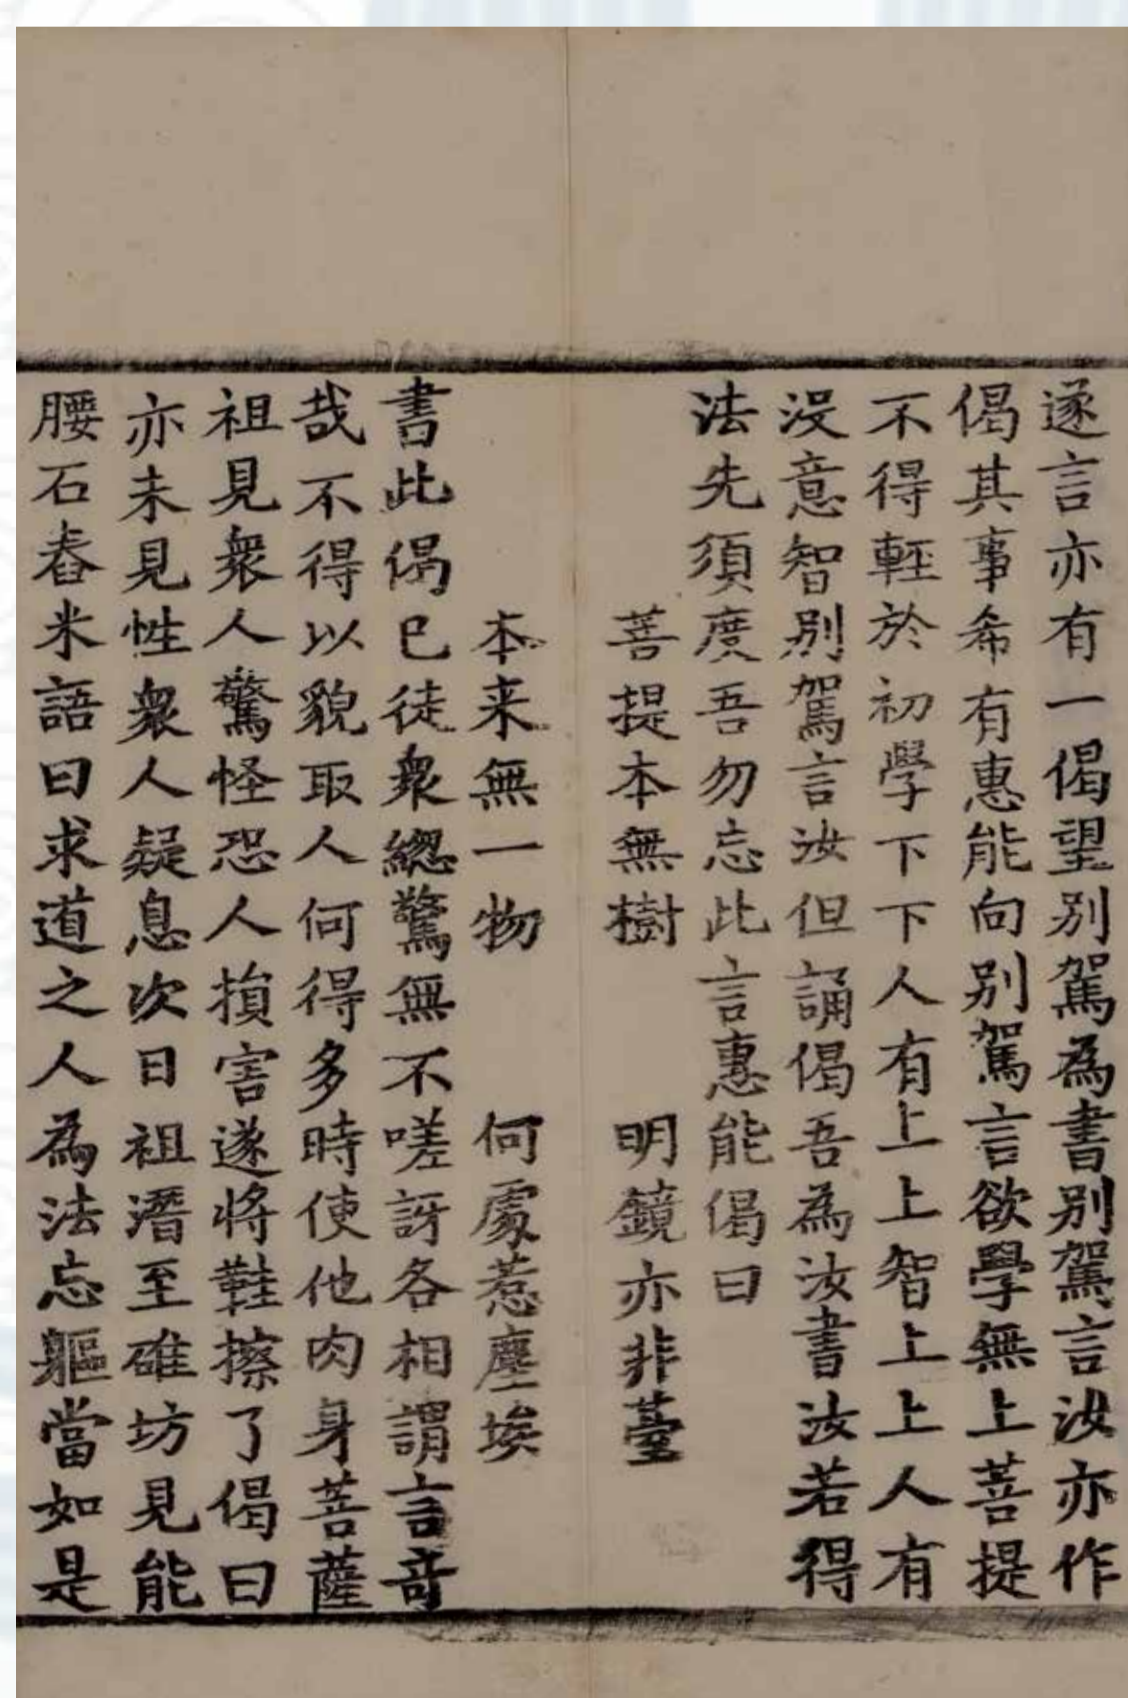 遂言亦有一偈望別駕為書別駕言汝亦作
偈其事希有惠能向別駕言欲學無上菩提
不得輕於初學下下人有上上智上上人有
沒意智別駕言汝但誦偈吾為汝書汝若得
法先須度吾勿忘此言惠能偈曰
菩提本無樹　明鏡亦非臺
本来無一物　何處惹塵埃
書此偈已徒衆緫驚無不嗟訝各相謂言竒
哉不得以貌取人何得多時使他肉身菩薩
祖見衆人驚怪恐人損害遂將鞋擦了偈曰
亦未見性衆人疑息次日祖潛至碓坊見能
腰石舂米語曰求道之人為法忘軀當如是